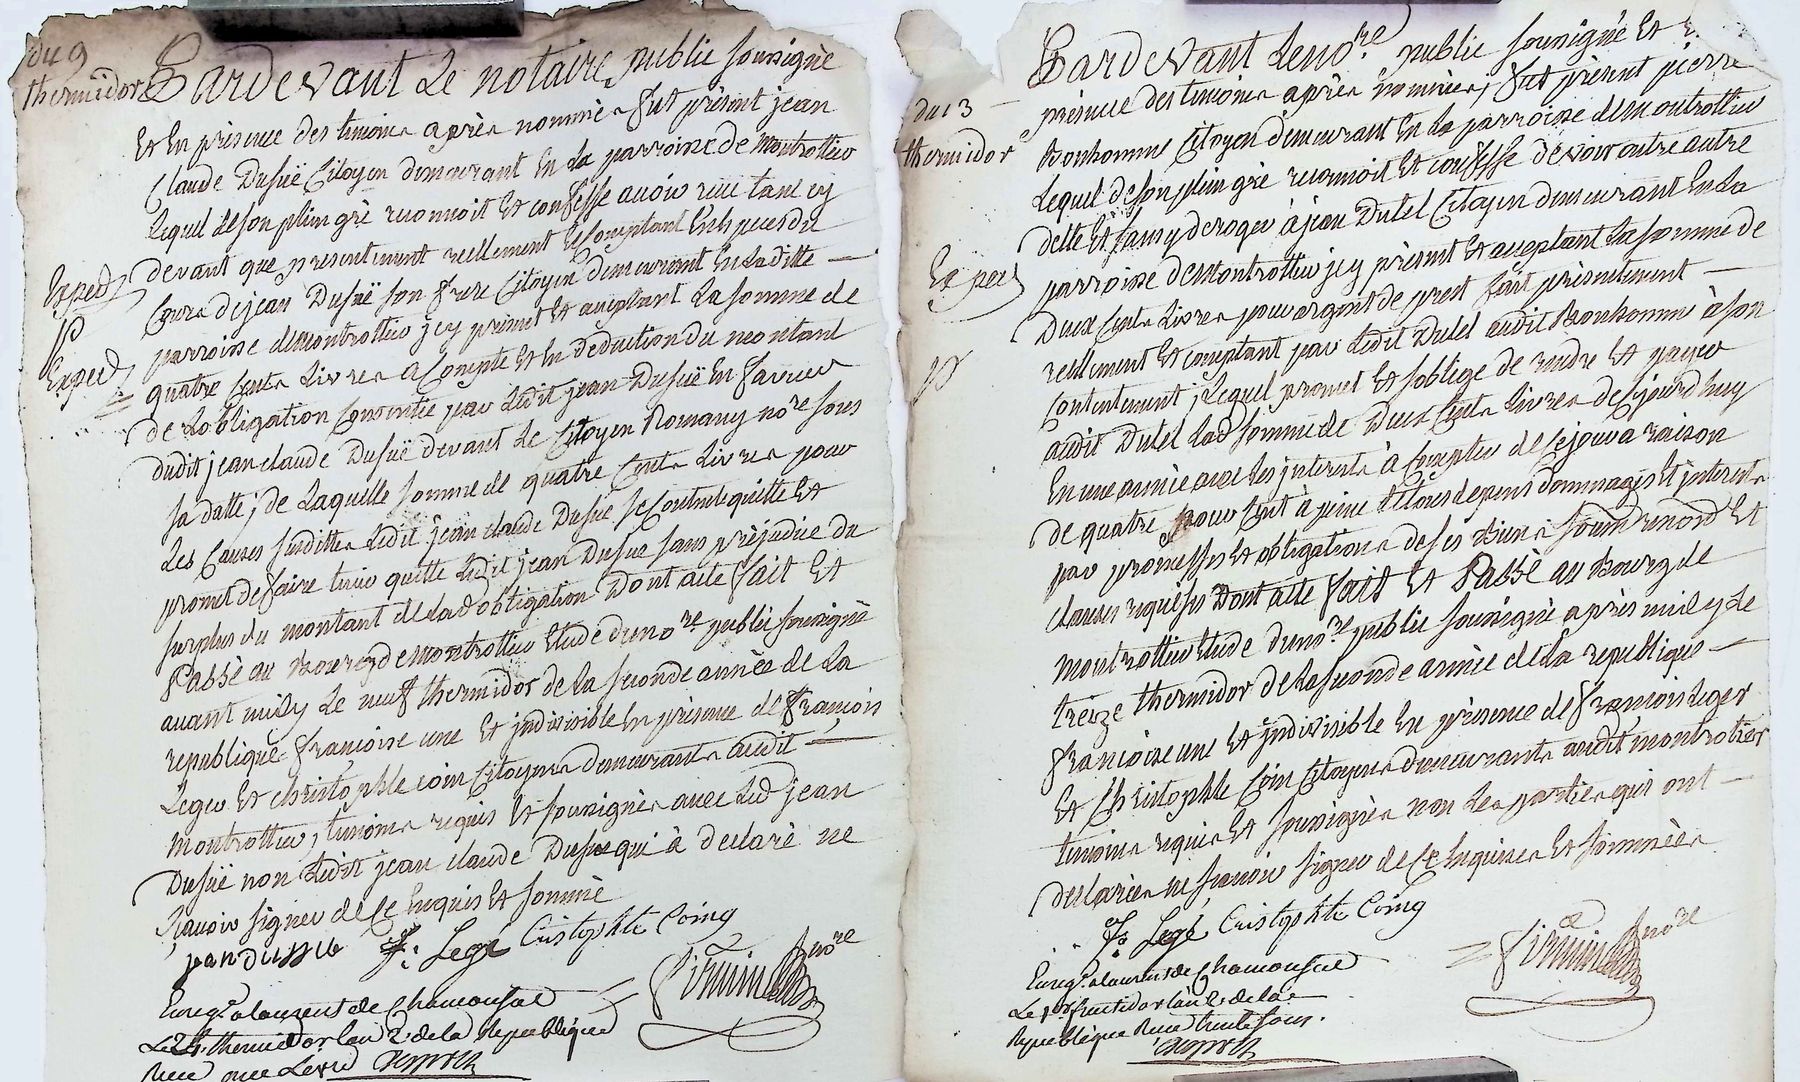 du 9
thermidor
Pardevant Le notaire public soussigné
Et En presence des temoins après nommés fut présent jean
Claude Dusuë Citoyen demeurant En La parroisse de Montrottier
Lequel de son plein gré reconnoit Et confesse avoir reçu tant cy
devant que presentement reellement Et Comptant En Especes du
Cours de jean Dusuë son frere Citoyen demeurant En Laditte
Exped
parroisse de Montrottier jcy présent Et acceptant La somme de
quatre Cents Livres a Compte Et En deduction du montant
Exped
de Lobligation Consentie par Ledit jean Dusuë En faveur
dudit jean claude Dusuë devant Le Citoyen Romany nore sous
sa datte ; de Laquelle somme de quatre Cents Livres pour
Les Causes susdittes Ledit jean claude Dusuë se Contente quitte Et
promet de faire tenir quitte Ledit jean Dusuë sans préjudice du
surplus du montant de Lad obligation Dont acte fait Et
Passé au Bourg de Montrottier Etude du nore public soussigné
avant midy Le neuf thermidor de La seconde année de La
republique françoise une Et jndivisible En présence de françois
Leger Et christophle coin Citoyens demeurants audit
Montrottier, temoins requis Et soussignés avec Led jean
Dusuë non Ledit jean claude Dusue qui à declaré ne
sçavoir signer de Ce Enquis Et sommé
jean dussu F: Legé Cristophle Coing
Firmin nore
Enregt. a Laurent de Chamousset
Le 24. thermidor lan 2. de la Republique
Reçu
du 13
thermidor
Pardevant Le nore. public soussigné Et
présence des temoins après nommés, fut présent pierre
Bonhomme Citoyen demeurant En La parroisse de Montrottier
Lequel de son plein gré reconnoit Et confesse devoir outre autre
dette Et sans y deroger à jean Dutel Citoyen demeurant En La
Exped
parroisse de Montrottier jcy présent Et acceptant La somme de
Deux Cents Livres pour argent de prest fait présentement
reellement Et comptant par Ledit Dutel audit Bonhomme à son
Contentement, Lequel promet Et soblige de rendre Et payer
audit Dutel Lad somme de Deux Cents Livres de cejourdhuy
En une année avec Les jnterests à Compter de Cejour a raison
de quatre pour Cent à peine de tous depens dommages Et jnterests
par promesses Et obligations de ses Biens soumis renond Et
clauses requises Dont acte fait Et Passé au Bourg de
Montrottier Etude du nore. public soussigné après midy Le
treize thermidor de La seconde année de La republique
françoise une Et jndivisible En présence de françois Leger
Et Christophle Coin Citoyens demeurants audit montrotier
temoins requis Et soussignés non Les parties qui ont
declarées ne scavoir signer de Ce Enquises Et sommées
F: Legé Cristophle Coing
Firmin nore
Enregt. a Laurent de Chamousset
Le 1er fructidor lan 2. de la
Republique Reçu trente sous.